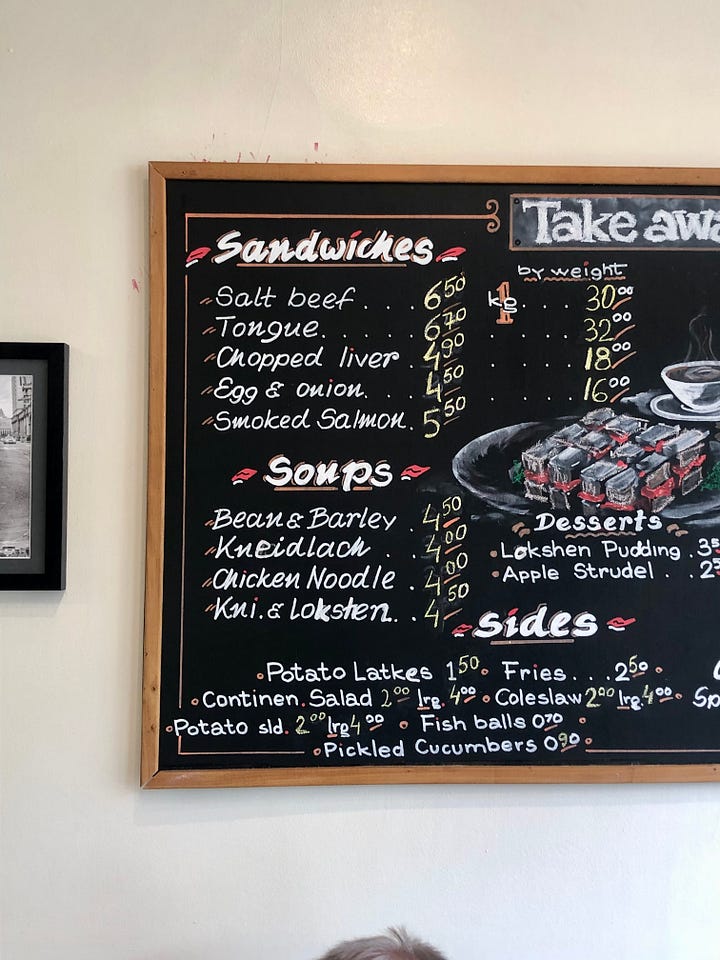 Take awa
Sandwiches
by weight
Salt beef . . . 6 50 1 kg . . . 30 00
Tongue . . . . . 6 70 . . . . 32 00
Chopped liver . 4 90 . . . . 18 00
Egg & onion. . . 4 50 . . . . 16 00
Smoked Salmon. 5 50
Soups
Bean & Barley . 4 50
Kneidlach . . 4 00
Chicken Noodle . 4 00
Kni. & Lokshen. . 4 50
Desserts
Lokshen Pudding . 3
Apple Strudel . . 2
Sides
Potato Latkes 1 50 Fries. . . 2 50
Continen. Salad 2 00 lrg. 4 00 Coleslaw 2 00 lrg. 4 00 Sp
Potato sld. 2 00 lrg 4 00 Fish balls 0 70
Pickled Cucumbers 0 90